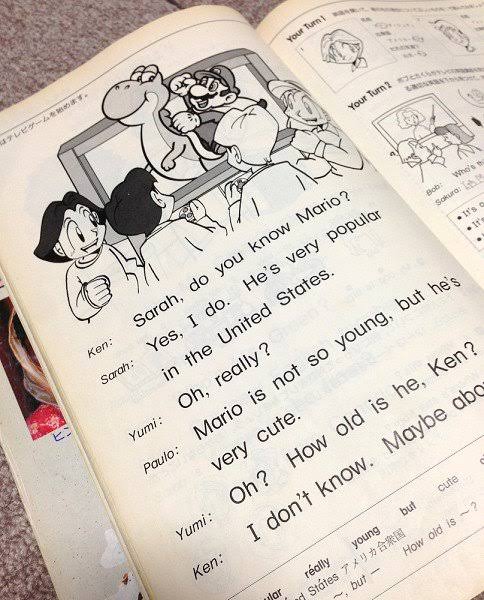 はテレビゲームを始めます。
Ken: Sarah, do you know Mario?
Sarah: Yes, I do. He's very popular
in the United States.
Yumi: Oh, really?
Paulo: Mario is not so young, but he's
very cute.
Yumi: Oh? How old is he, Ken?
Ken: I don't know. Maybe abo
ular réally young but cute
d Státes アメリカ合衆国
〜, but — How old is 〜?
Your Turn 1
Your Turn 2
Bob: Who's
Sakura:
• It's
• It's